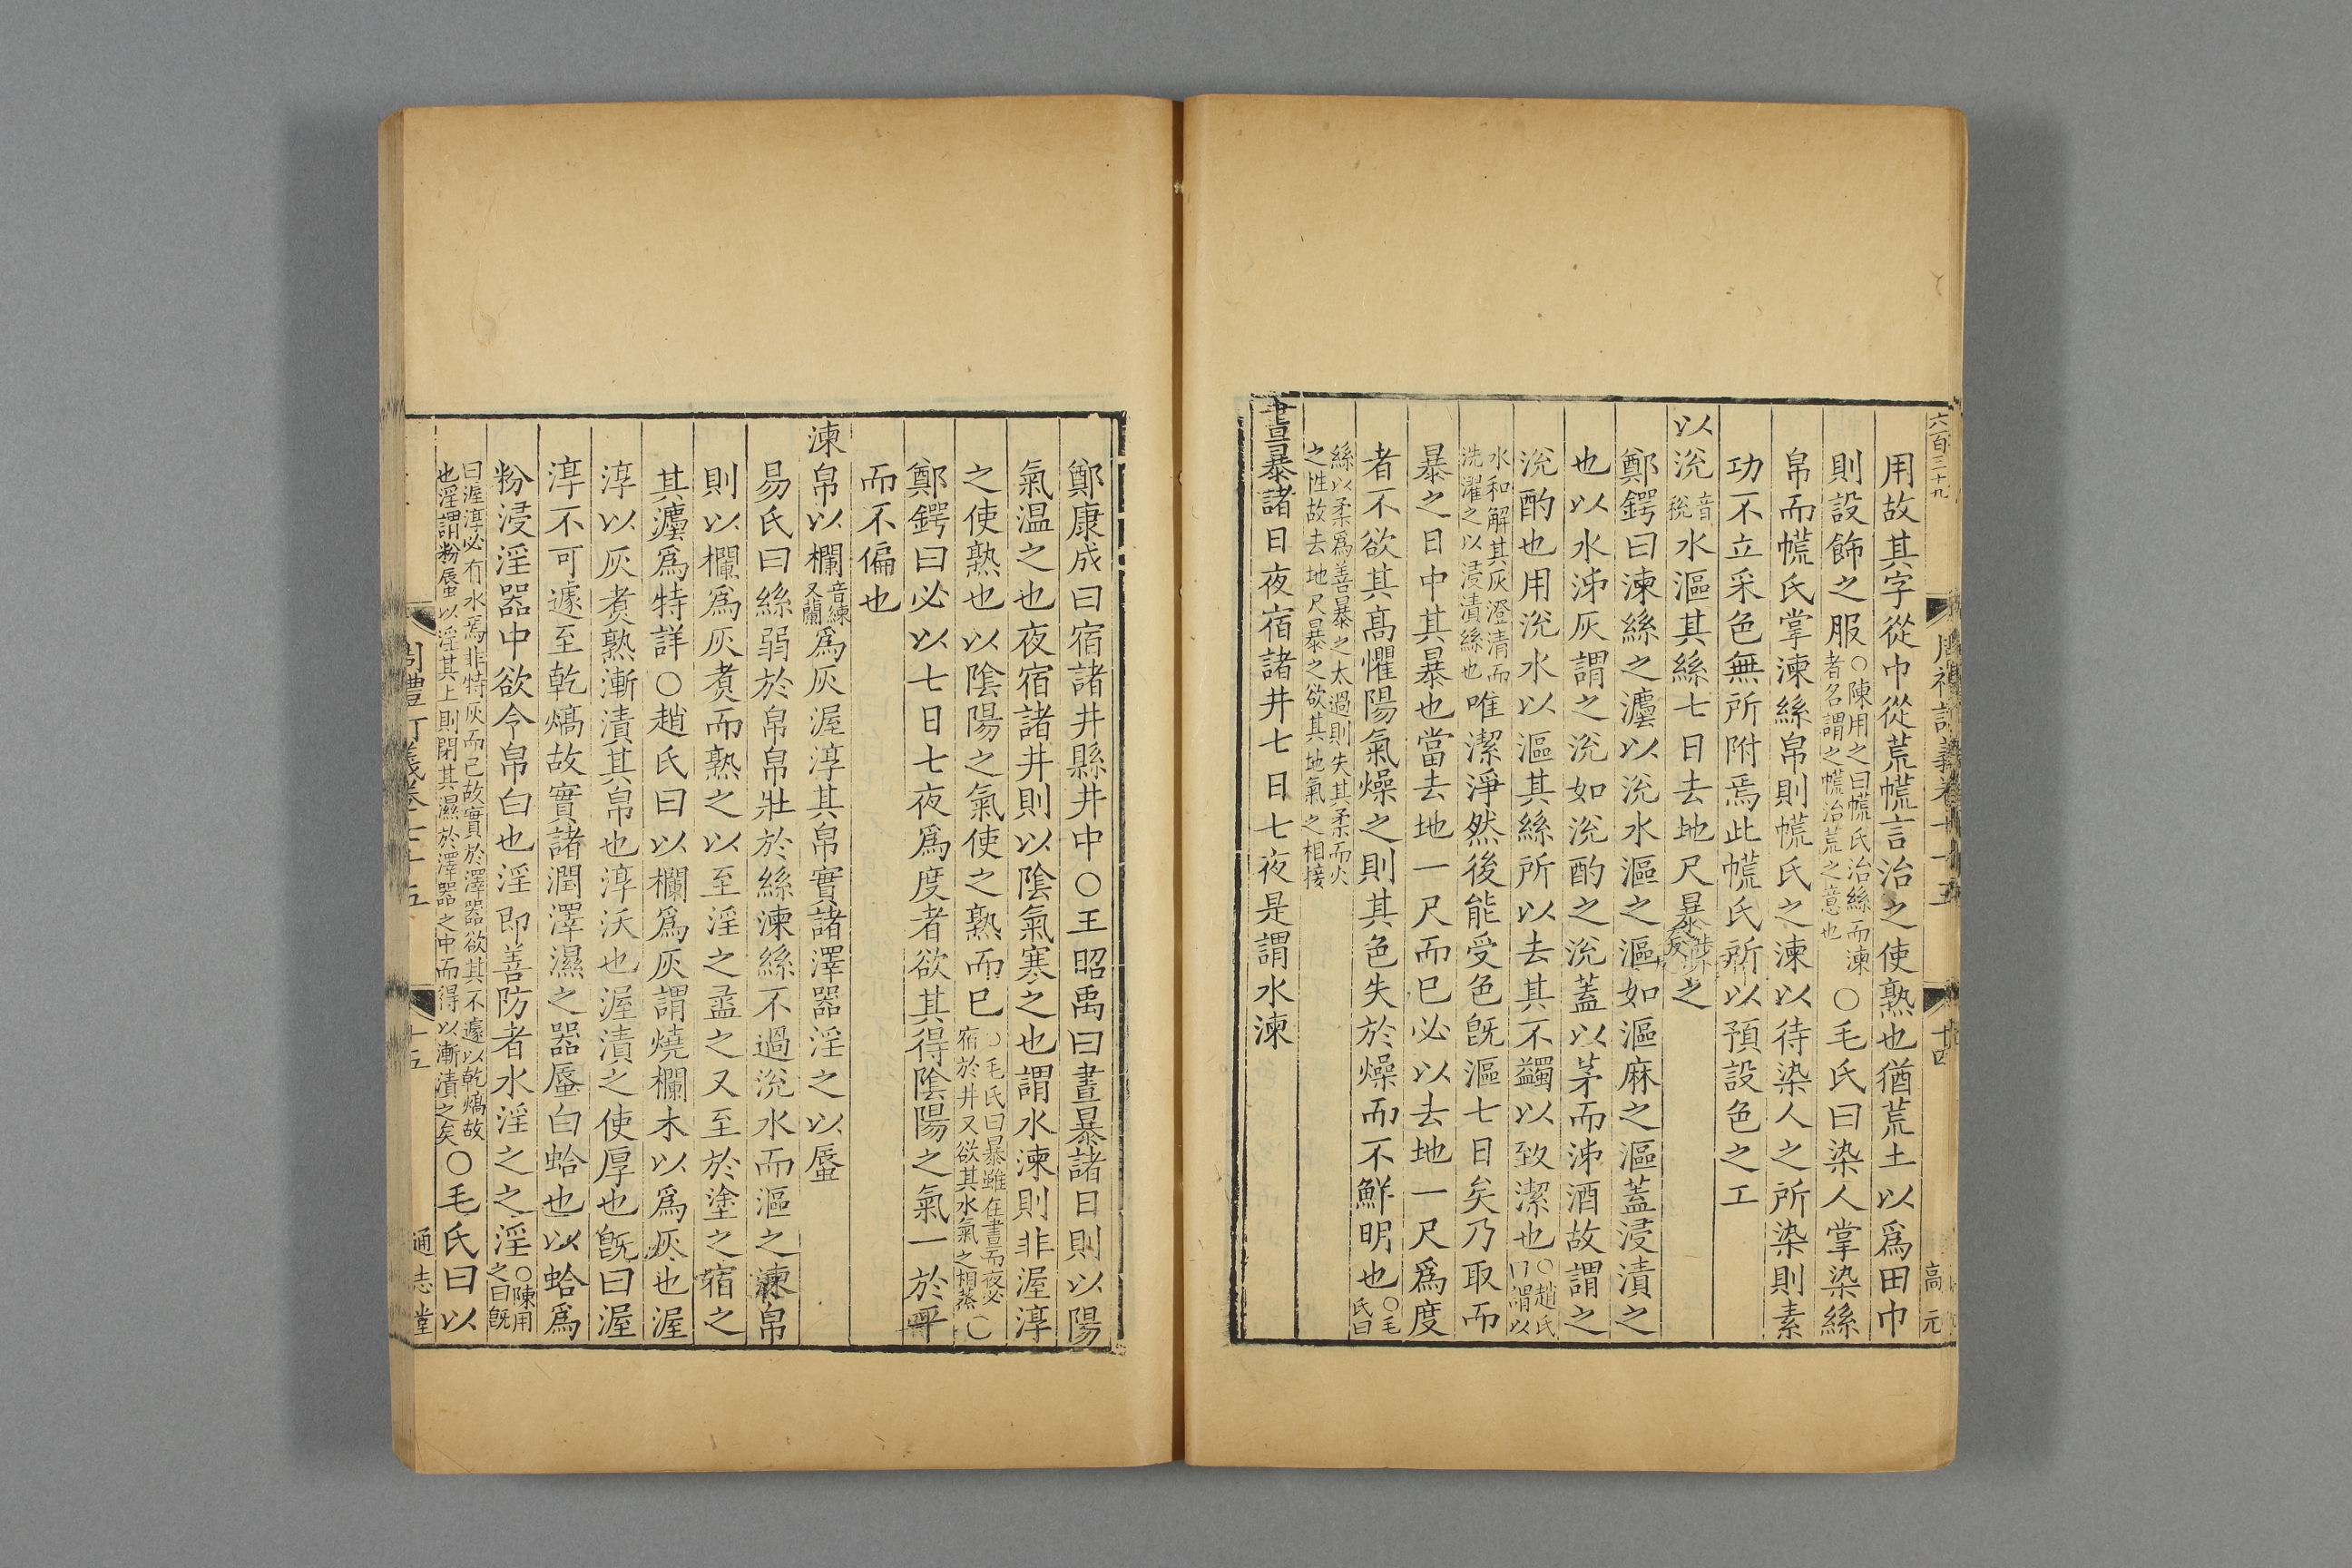 六百三十九
周禮訂義卷七十五
十四
高元
用故其字從巾從荒㡆言治之使熟也猶荒土以爲田巾
則設飾之服○陳用之曰㡆氏治絲而湅者名謂之㡆治荒之意也○毛氏曰染人掌染絲
帛而㡆氏掌湅絲帛則㡆氏之湅以待染人之所染則素
功不立采色無所附焉此㡆氏所以預設色之工
以涗音稅水漚其絲七日去地尺暴之
鄭鍔曰湅絲之灋以涗水漚之漚如漚麻之漚蓋浸漬之
也以水沛灰謂之涗如涗酌之涗蓋以茅而沛酒故謂之
涗酌也用涗水以漚其絲所以去其不蠲以致潔也○趙氏曰謂以
水和解其灰澄清而洗濯之以浸漬絲也唯潔淨然後能受色旣漚七日矣乃取而
暴之日中其暴也當去地一尺而已必以去地一尺爲度
者不欲其高懼陽氣燥之則其色失於燥而不鮮明也○毛氏曰
絲以柔爲善暴之太過則失其柔而火之性故去地尺暴之欲其地氣之相接
晝暴諸日夜宿諸井七日七夜是謂水湅
鄭康成曰宿諸井縣井中○王昭禹曰晝暴諸日則以陽
氣温之也夜宿諸井則以陰氣寒之也謂水湅則非渥淳
之使熟也以陰陽之氣使之熟而已○毛氏曰暴雖在晝而夜必宿於井又欲其水氣之相蒸○
鄭鍔曰必以七日七夜爲度者欲其得陰陽之氣一於平
而不偏也
湅帛以欄音練又蘭爲灰渥淳其帛實諸澤器淫之以蜃
易氏曰絲弱於帛帛壯於絲湅絲不過涗水而漚之湅帛
則以欄爲灰煑而熟之以至淫之盝之又至於塗之宿之
其灋爲特詳○趙氏曰以欄爲灰謂燒欄木以爲灰也渥
淳以灰煑熟漸漬其帛也淳沃也渥漬之使厚也旣曰渥
淳不可遽至乾熇故實諸潤澤濕之器蜃白蛤也以蛤爲
粉浸淫器中欲令帛白也淫即善防者水淫之之淫○陳用之曰旣
曰渥淳必有水焉非特灰而已故實於澤器欲其不遽以乾熇故也淫謂粉蜃以淫其上則閉其濕於澤器之中而得以漸漬之矣○毛氏曰以
周禮訂義卷七十五
十五
通志堂